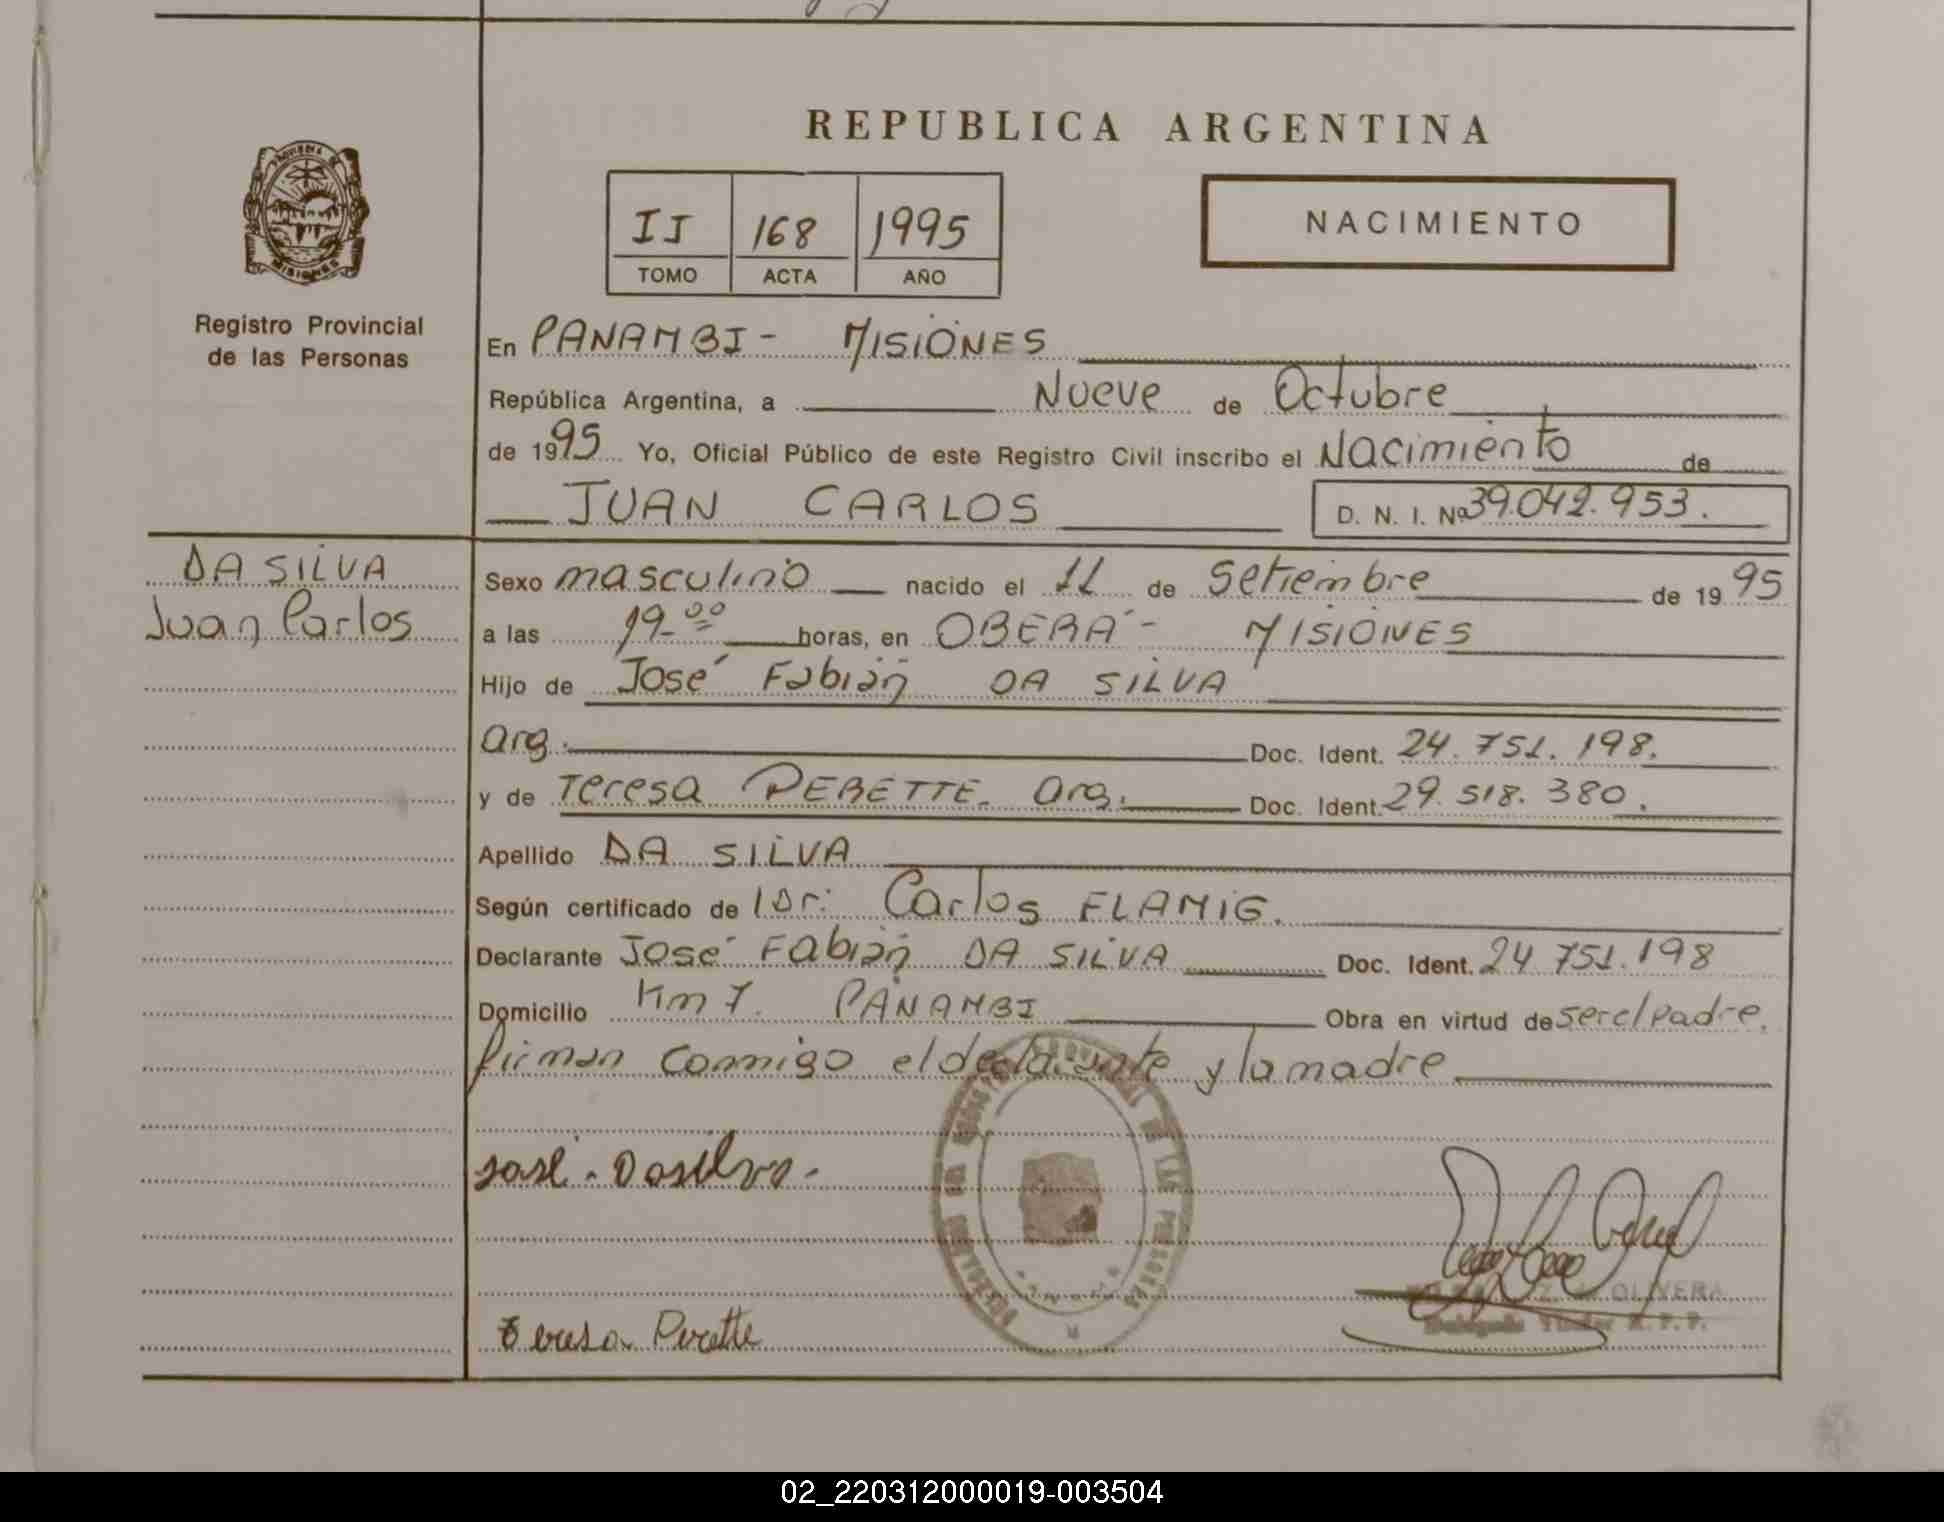 REPUBLICA ARGENTINA
PROVINCIA DE
MISIONES
Registro Provincial
de las Personas
II 168 1995
TOMO ACTA AÑO
NACIMIENTO
En PANAMBI - MISIONES
República Argentina, a Nueve de Octubre
de 1995 Yo, Oficial Público de este Registro Civil inscribo el Nacimiento de
JUAN CARLOS D. N. I. Nº 39.042.953.
DA SILVA
Juan Carlos
Sexo masculino nacido el 11 de Setiembre de 1995
a las 19-00 horas, en OBERÁ - MISIONES
Hijo de José Fabián DA SILVA
arg. Doc. Ident. 24.751.198.
y de Teresa PERETTE. arg. Doc. Ident. 29.518.380.
Apellido DA SILVA
Según certificado de l Dr. Carlos FLAMIG.
Declarante José Fabián DA SILVA Doc. Ident. 24 751.198
Domicilio Km 7. PANAMBI Obra en virtud de ser el padre.
firman conmigo el declarante y la madre
José - Dasilva -
OLIVERA
Teresa Perette
02_220312000019-003504